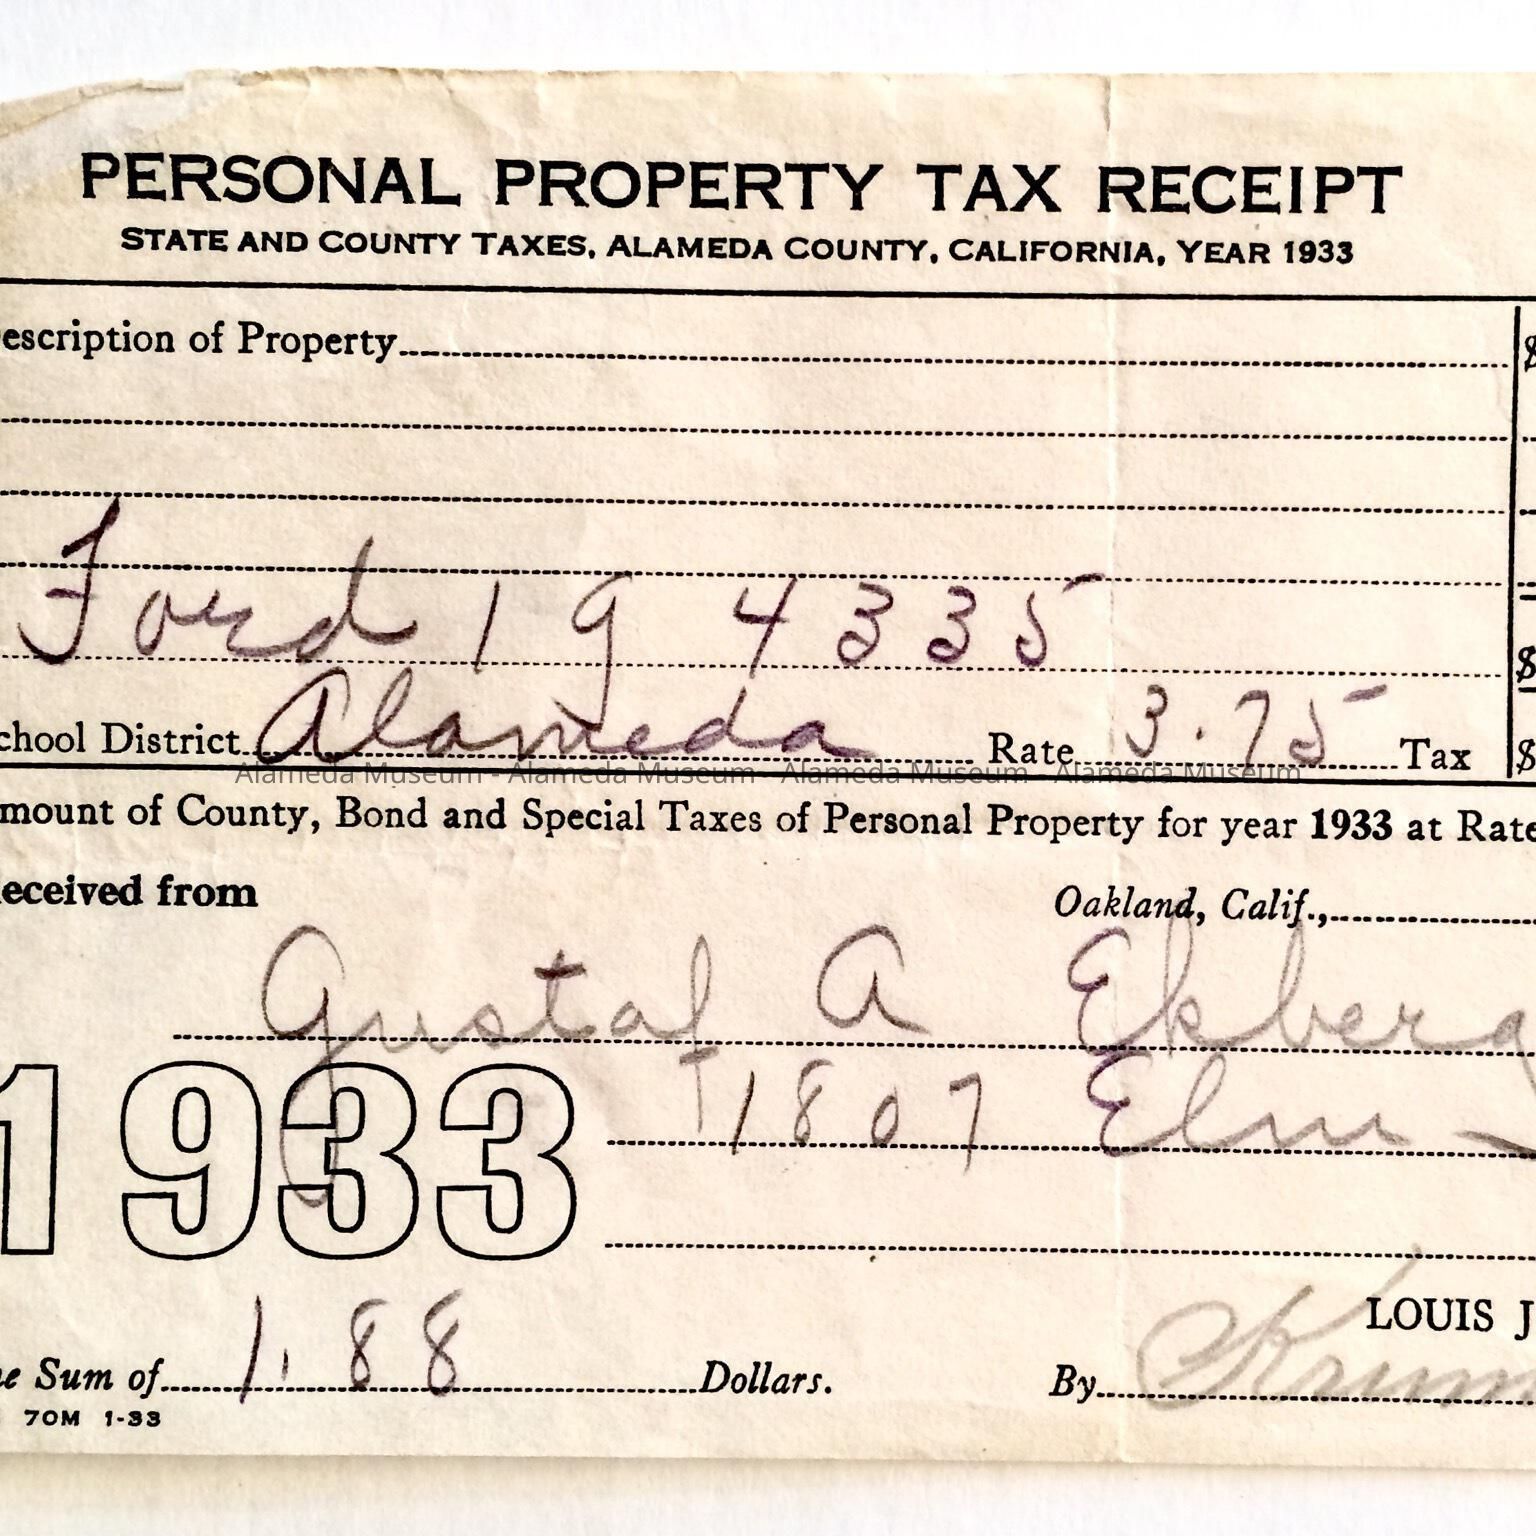 PERSONAL PROPERTY TAX RECEIPT
STATE AND COUNTY TAXES, ALAMEDA COUNTY, CALIFORNIA, YEAR 1933
escription of Property $
Ford 19 4335 $
chool District Alameda Rate 3.75 Tax $
Alameda Museum - Alameda Museum - Alameda Museum - Alameda Museum
mount of County, Bond and Special Taxes of Personal Property for year 1933 at Rate
eceived from Oakland, Calif.,
Gustaf A Ekberg
1807 Elm
1933
LOUIS J
e Sum of 1.88 Dollars. By
70M 1-33